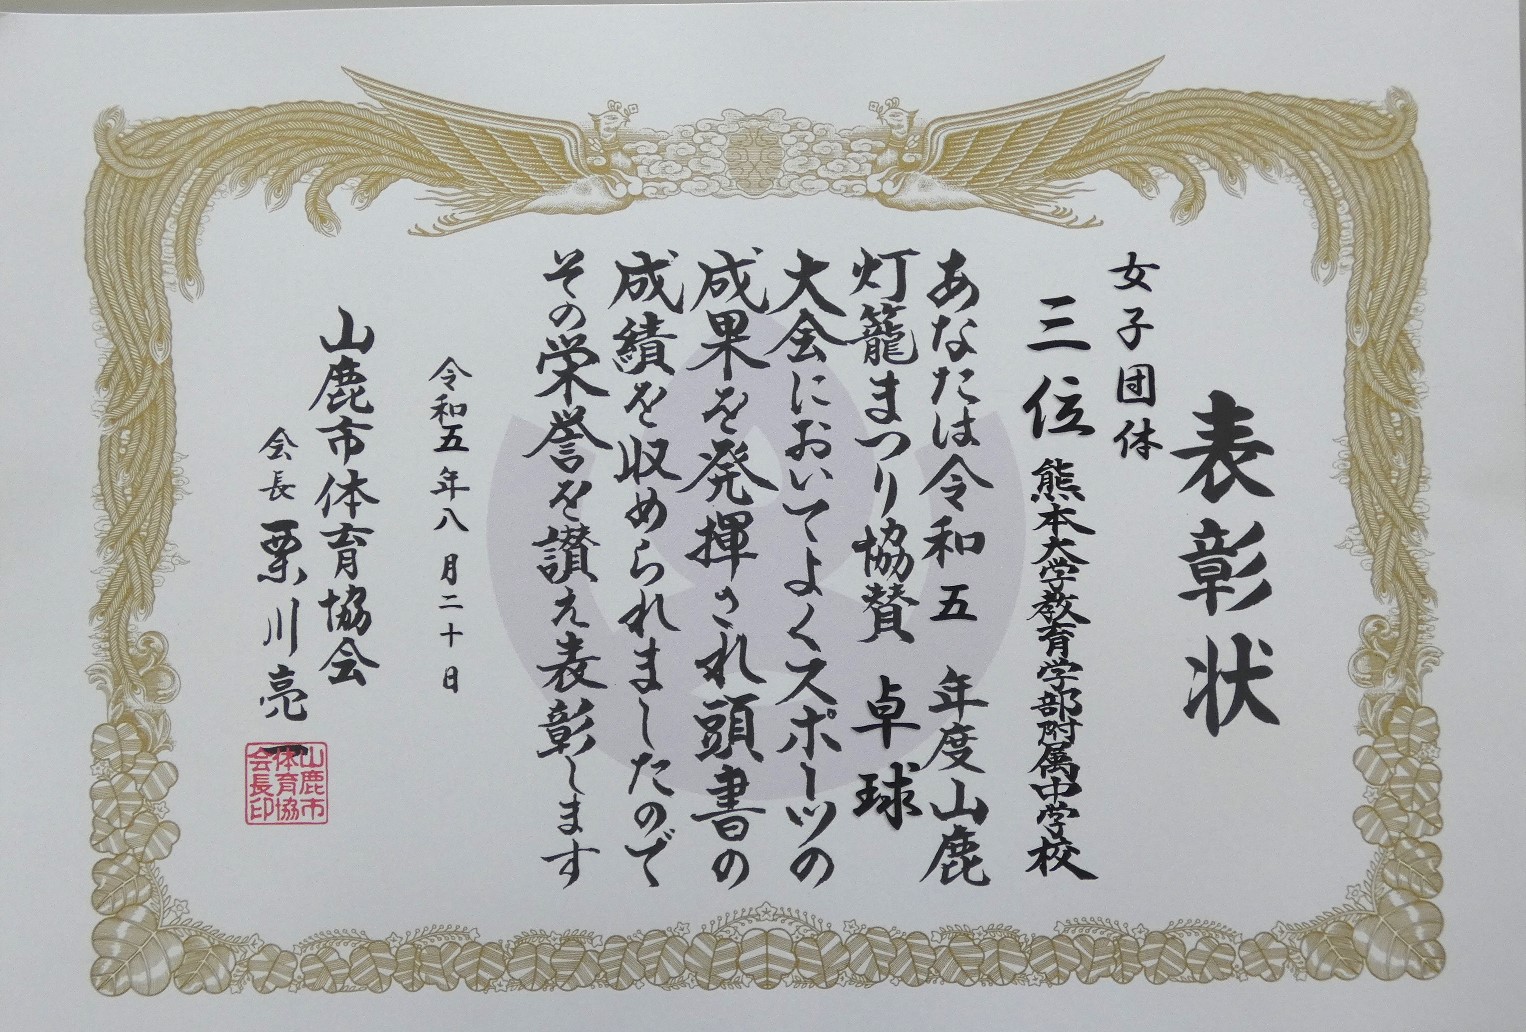 表彰状
女子団体
三位 熊本大学教育学部附属中学校
あなたは令和五年度山鹿
灯籠まつり協賛 卓球
大会においてよくスポーツの
成果を発揮され頭書の
成績を収められましたので
その栄誉を讃え表彰します
令和五年八月二十日
山鹿市体育協会
会長 栗川亮一
山鹿市
体育協
会長印